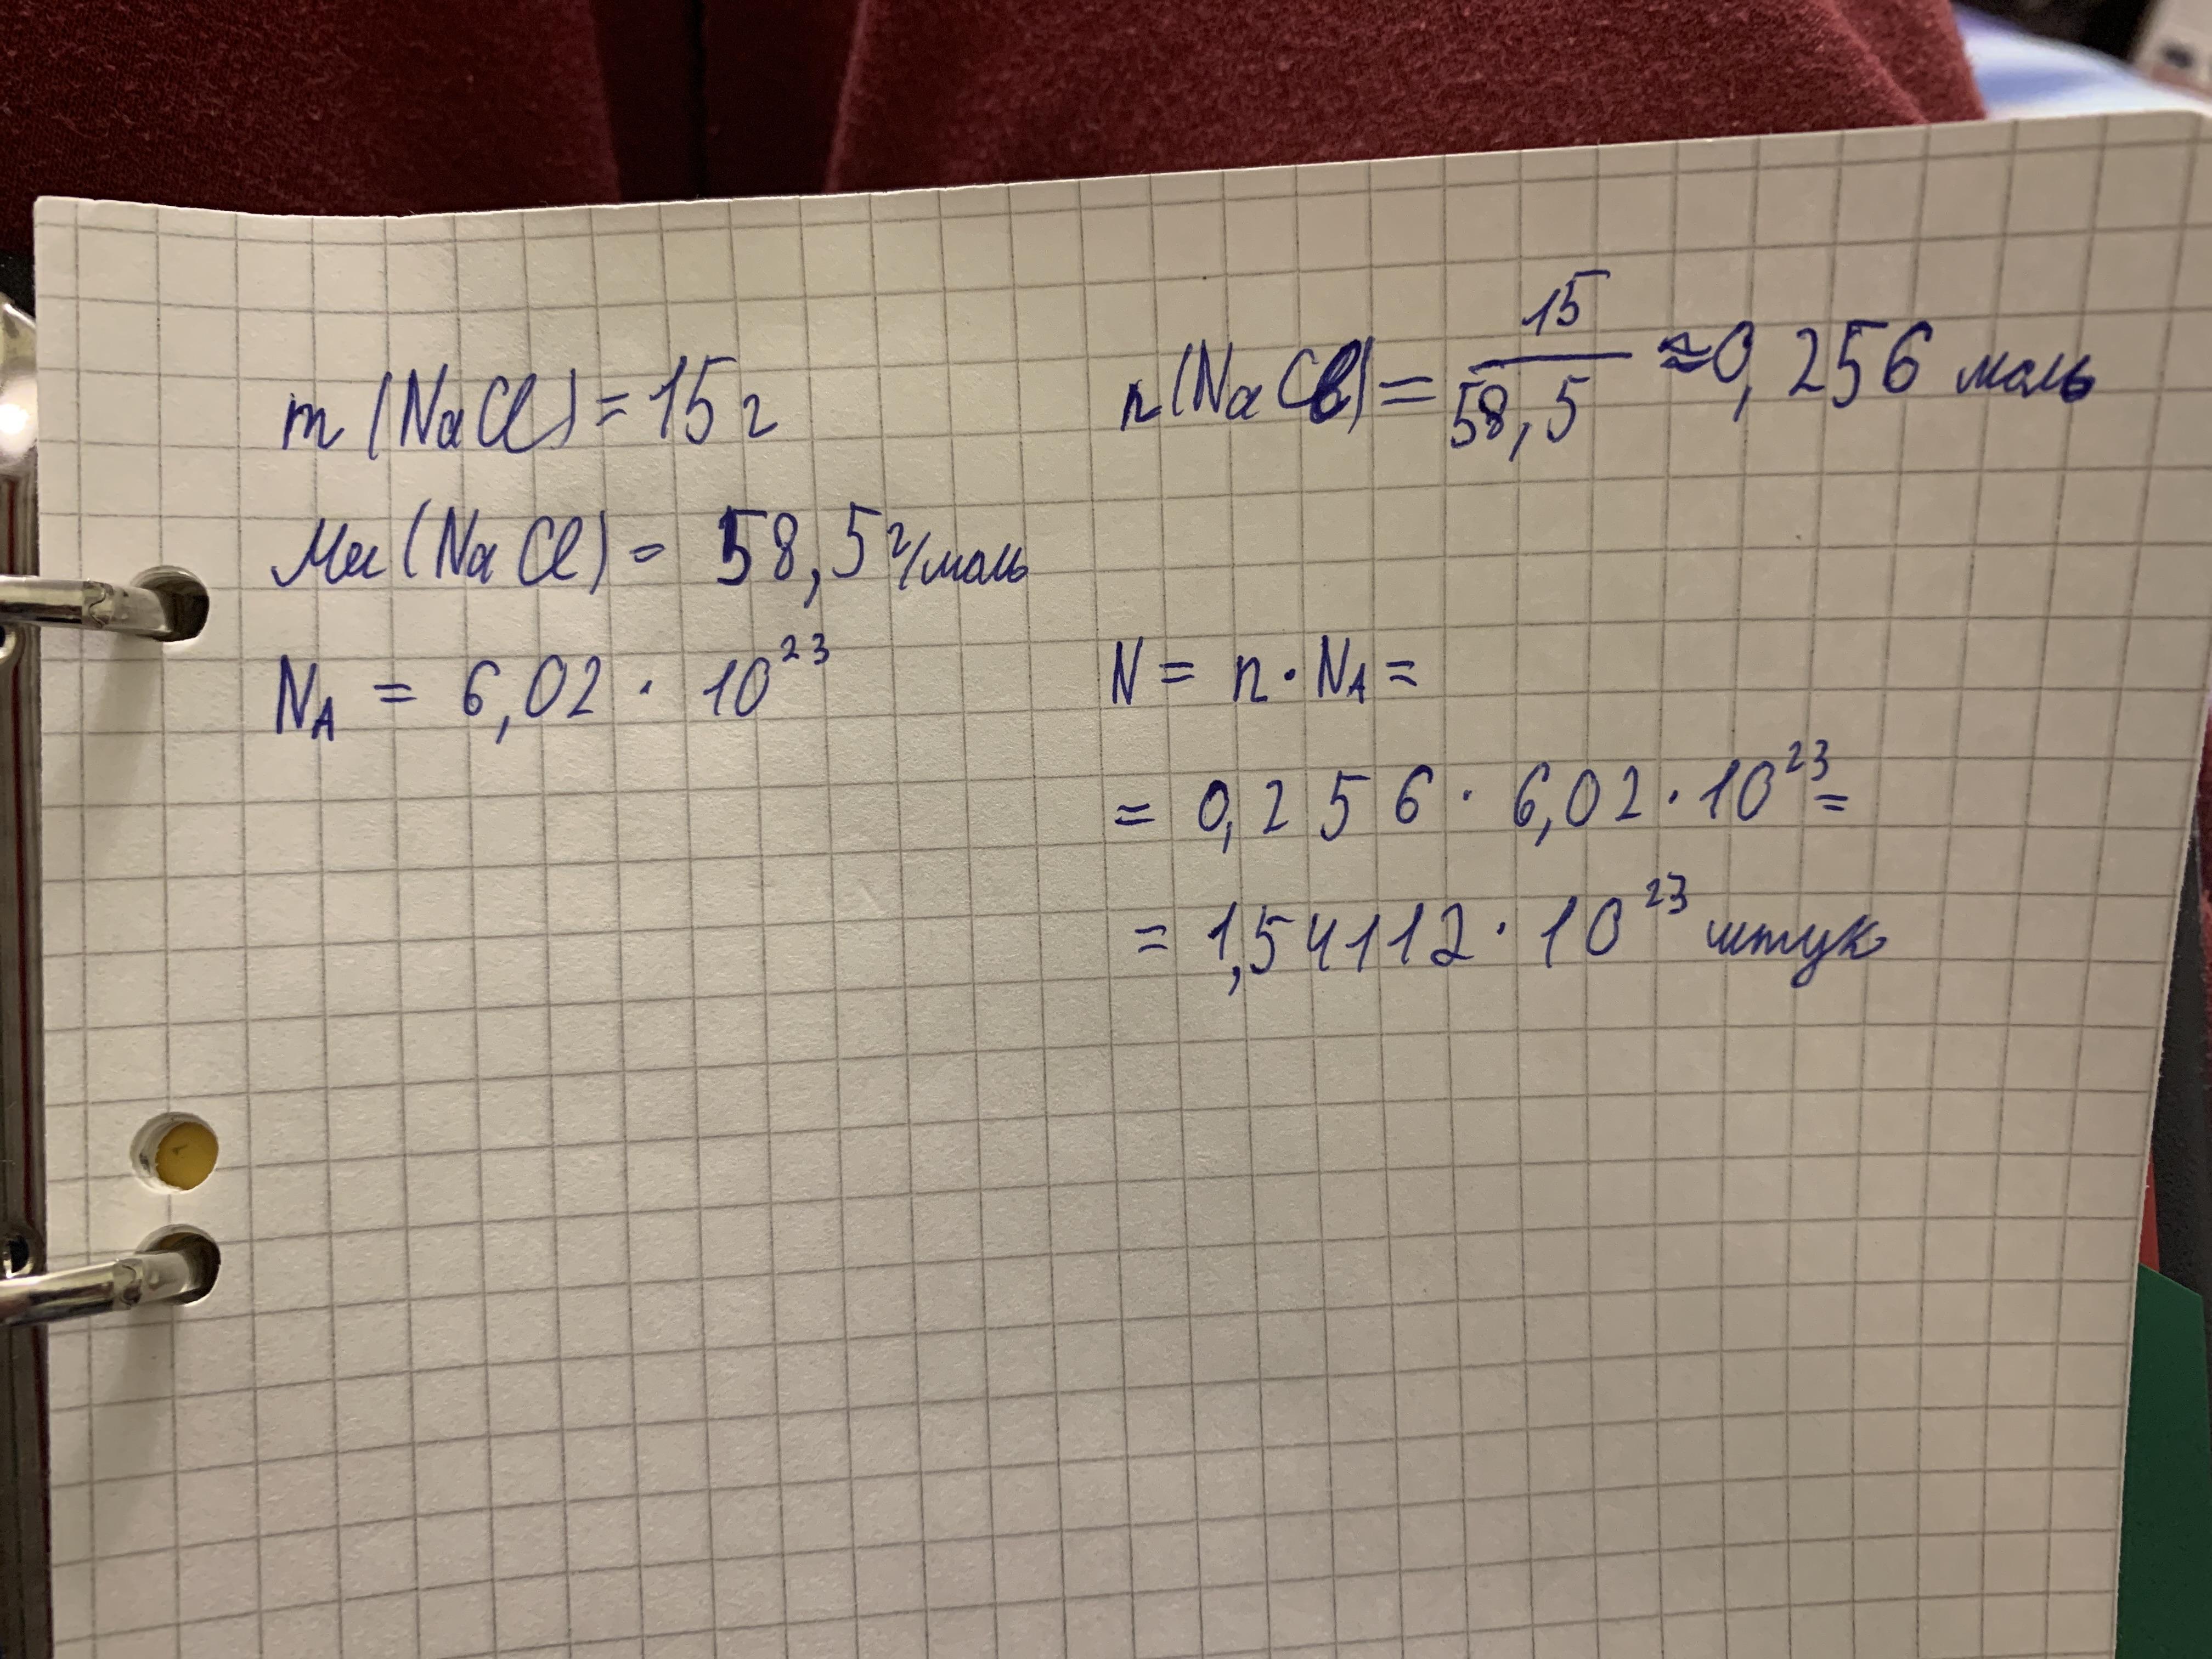 m(NaCl) = 15 г
Mм(NaCl) = 58,5 г/моль
N_A = 6,02 · 10²³
n(NaCl) = 15/58,5 ≈ 0,256 моль
N = n · N_A =
= 0,256 · 6,02 · 10²³ =
= 1,54112 · 10²³ штук